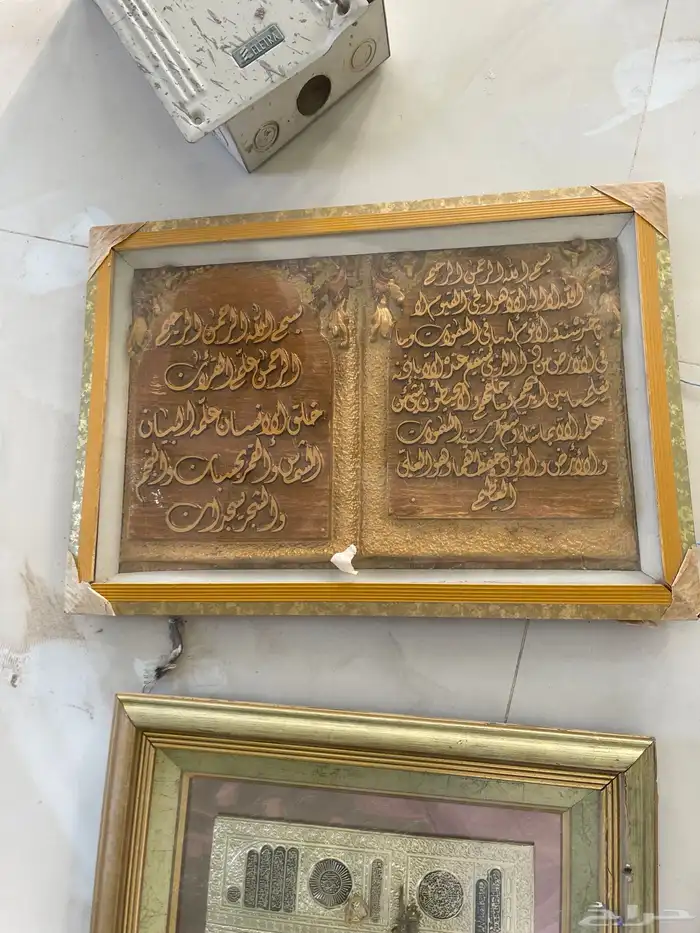 ELETRA
بسم الله الرحمن الرحيم
الله لا اله الا هو الحي القيوم لا
تاخذه سنة ولا نوم له ما في السموات وما
في الأرض من ذا الذي يشفع عنده الا باذنه
يعلم ما بين ايديهم وما خلفهم ولا يحيطون بشئ من
علمه الا بما شاء وسع كرسيه السموات
والأرض ولا يؤده حفظهما وهو العلي
العظيم
بسم الله الرحمن الرحيم
الرحمن علم القرآن
خلق الانسان علمه البيان
الشمس والقمر بحسبان والنجم
والشجر يسجدان
حراج